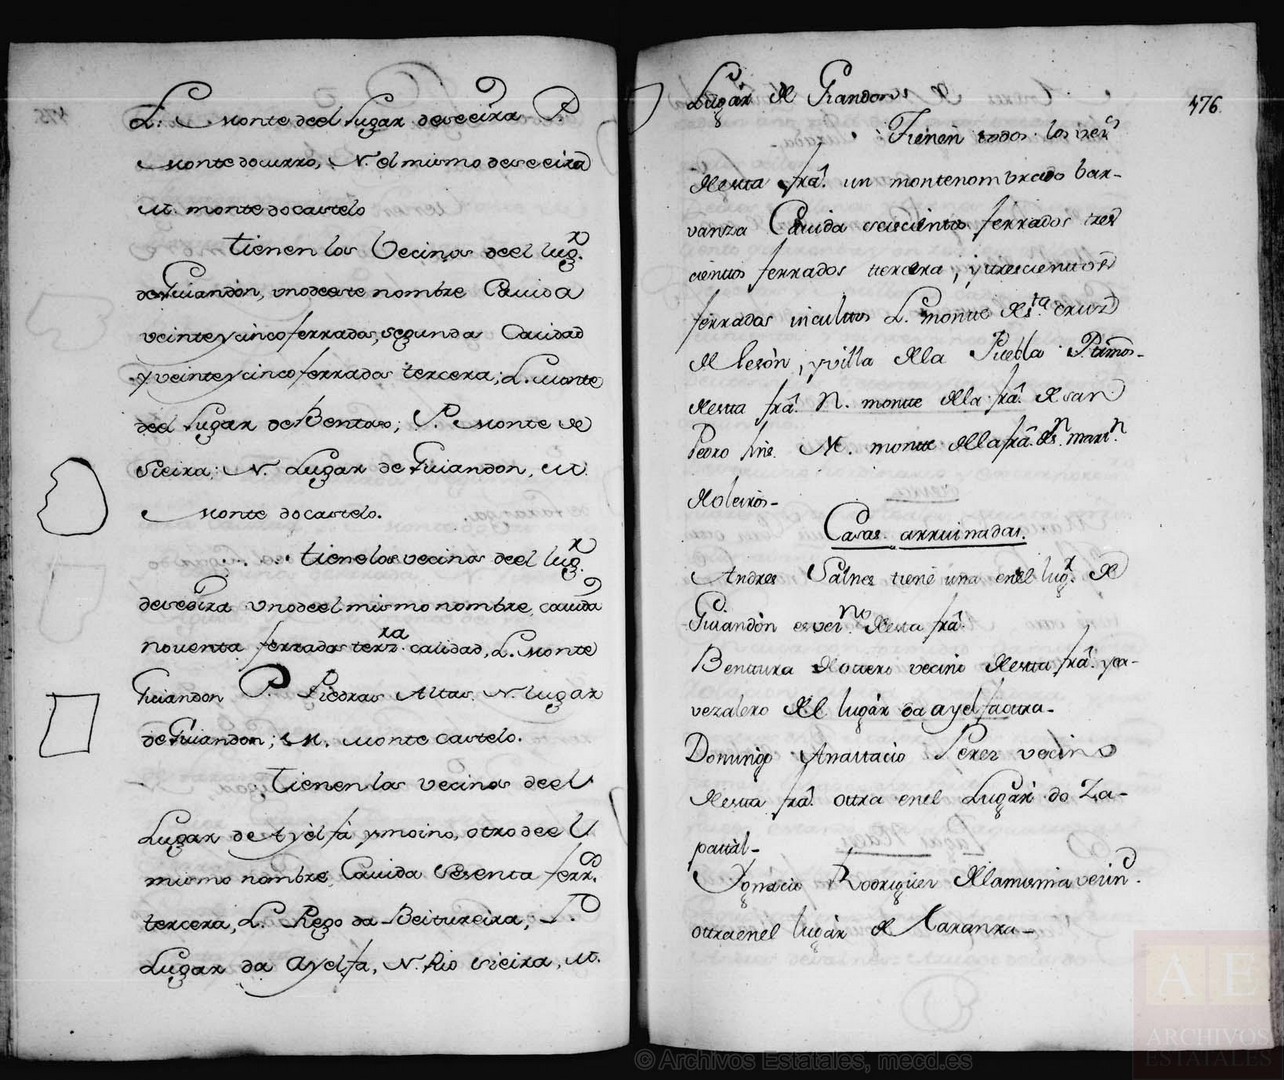 L. Monte deel Lugar deveeira P.
Monte docurro, N. el mismo deveeira
M. monte docastelo
Tienen los Vecinos deel lugr.
de Guiandon, uno deeste nombre Cavida
veinte y cinco ferrados, segunda Calidad
y veinte y cinco ferrados tercera; L. Monte
del Lugar de Bentoso; P. Monte de
Vieira: N. Lugar de Guiandon, M.
Monte do Castelo.
tiene los vecinos deel lugr.
deveeira uno deel mismo nombre, cavida
noventa ferrados terzra. calidad, L. Monte
Guiandon P. Piedras Altas. N. lugar
de Guiandon; M. Monte Castelo.
Tienen los vecinos deel
Lugar de Ayelfa ymoino, otro deel
mismo nombre, Cavida Sesenta ferrs.
tercera, L. Rego da Beitureira, P.
Lugar da Ayelfa, N. Rio Vieira, M.
Lugar de Guiandon
476.
Tienen todos los vezs.
de esta fra. un monte nombrado bar-
vanza Cavida seiscientos ferrados tres
cientos ferrados tercera, y trescientos
ferrados incultos L. monte de sta. cruz
de leson, y villa de la Puebla P. termos.
de esta fra. N. monte de la fra. de san
Pedro M. monte de la fra. de sn. martn.
de oleiros-
Casas arruinadas.
Andres Salnes tiene una en el lugr. de
Guiandon es vezno. de esta fra.
Bentura de otero vecino de esta fra. y ca-
vezalero del lugar da ayelfa otra-
Domingo Anastacio Perez vecino
de esta fra. otra en el Lugar do Za-
patal-
Ygnacio Rodriguez de la misma vecin.
otra en el lugar de Naranza-
© Archivos Estatales, mecd.es
AE
ARCHIVOS
ESTATALES